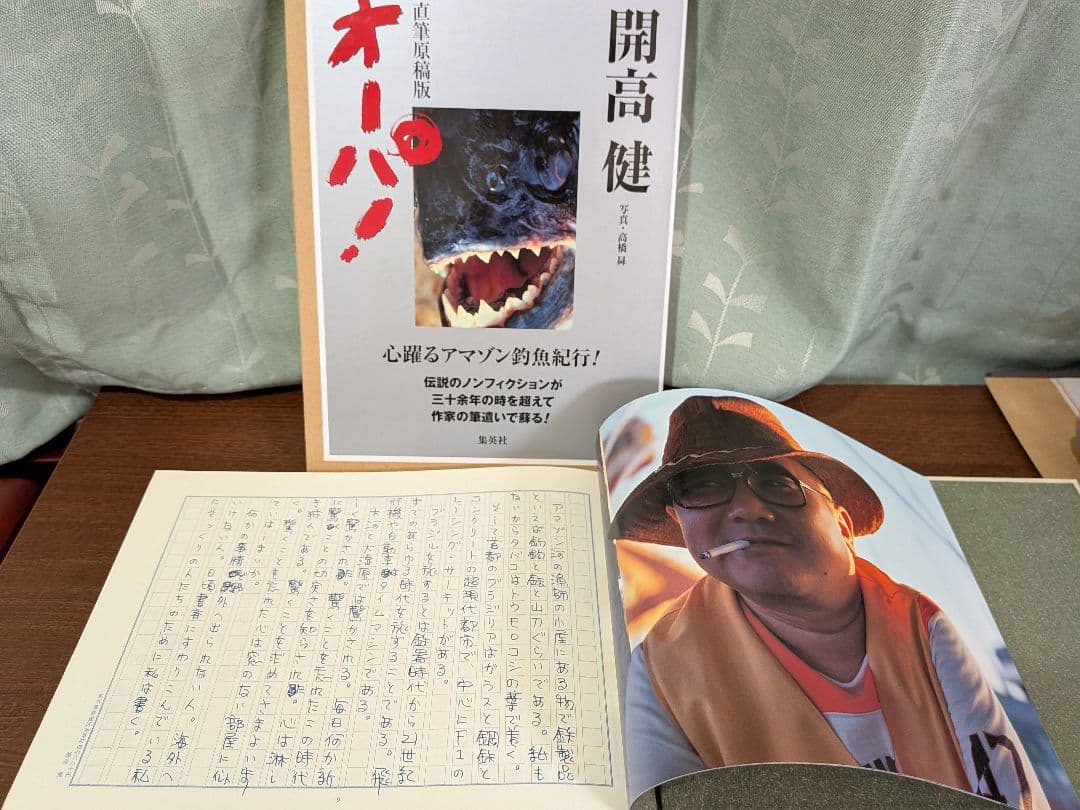 開高 健
写真・高橋 曻
直筆原稿版
オーパ!
心躍るアマゾン釣魚紀行!
伝説のノンフィクションが
三十余年の時を超えて
作家の筆遣いで蘇る!
集英社
アマゾン河の漁師の小屋にある物で鉄製品
といえば釣鈎と銛と山刀ぐらいである。紙も
ないからタバコはトウモロコシの葉で巻く。
そして首都のブラジリアはガラスと鋼鉄と
コンクリートの超現代都市で、中心にF1の
レーシング・サーキットがある。
ブラジルを旅することは鉄器時代から21世紀
までのあらゆる時代を旅することである。飛
行機や自動車はタイム・マシンである。
大河と大海原では驚かされる。毎日何か新
しく驚かされた。驚くことを忘れたこの時代
に驚くことの切実さを知らされた。心は淋し
き狩人である。驚くことを求めてさまよい歩
く。驚くことを忘れた心は窓のない部屋に似
ていはしまいか。
何かの事情 外へ出られない人。海外へ
いけない人。日頃書斎にすわりこんでいる私
にそっくりの人たちのために私は書く。
47